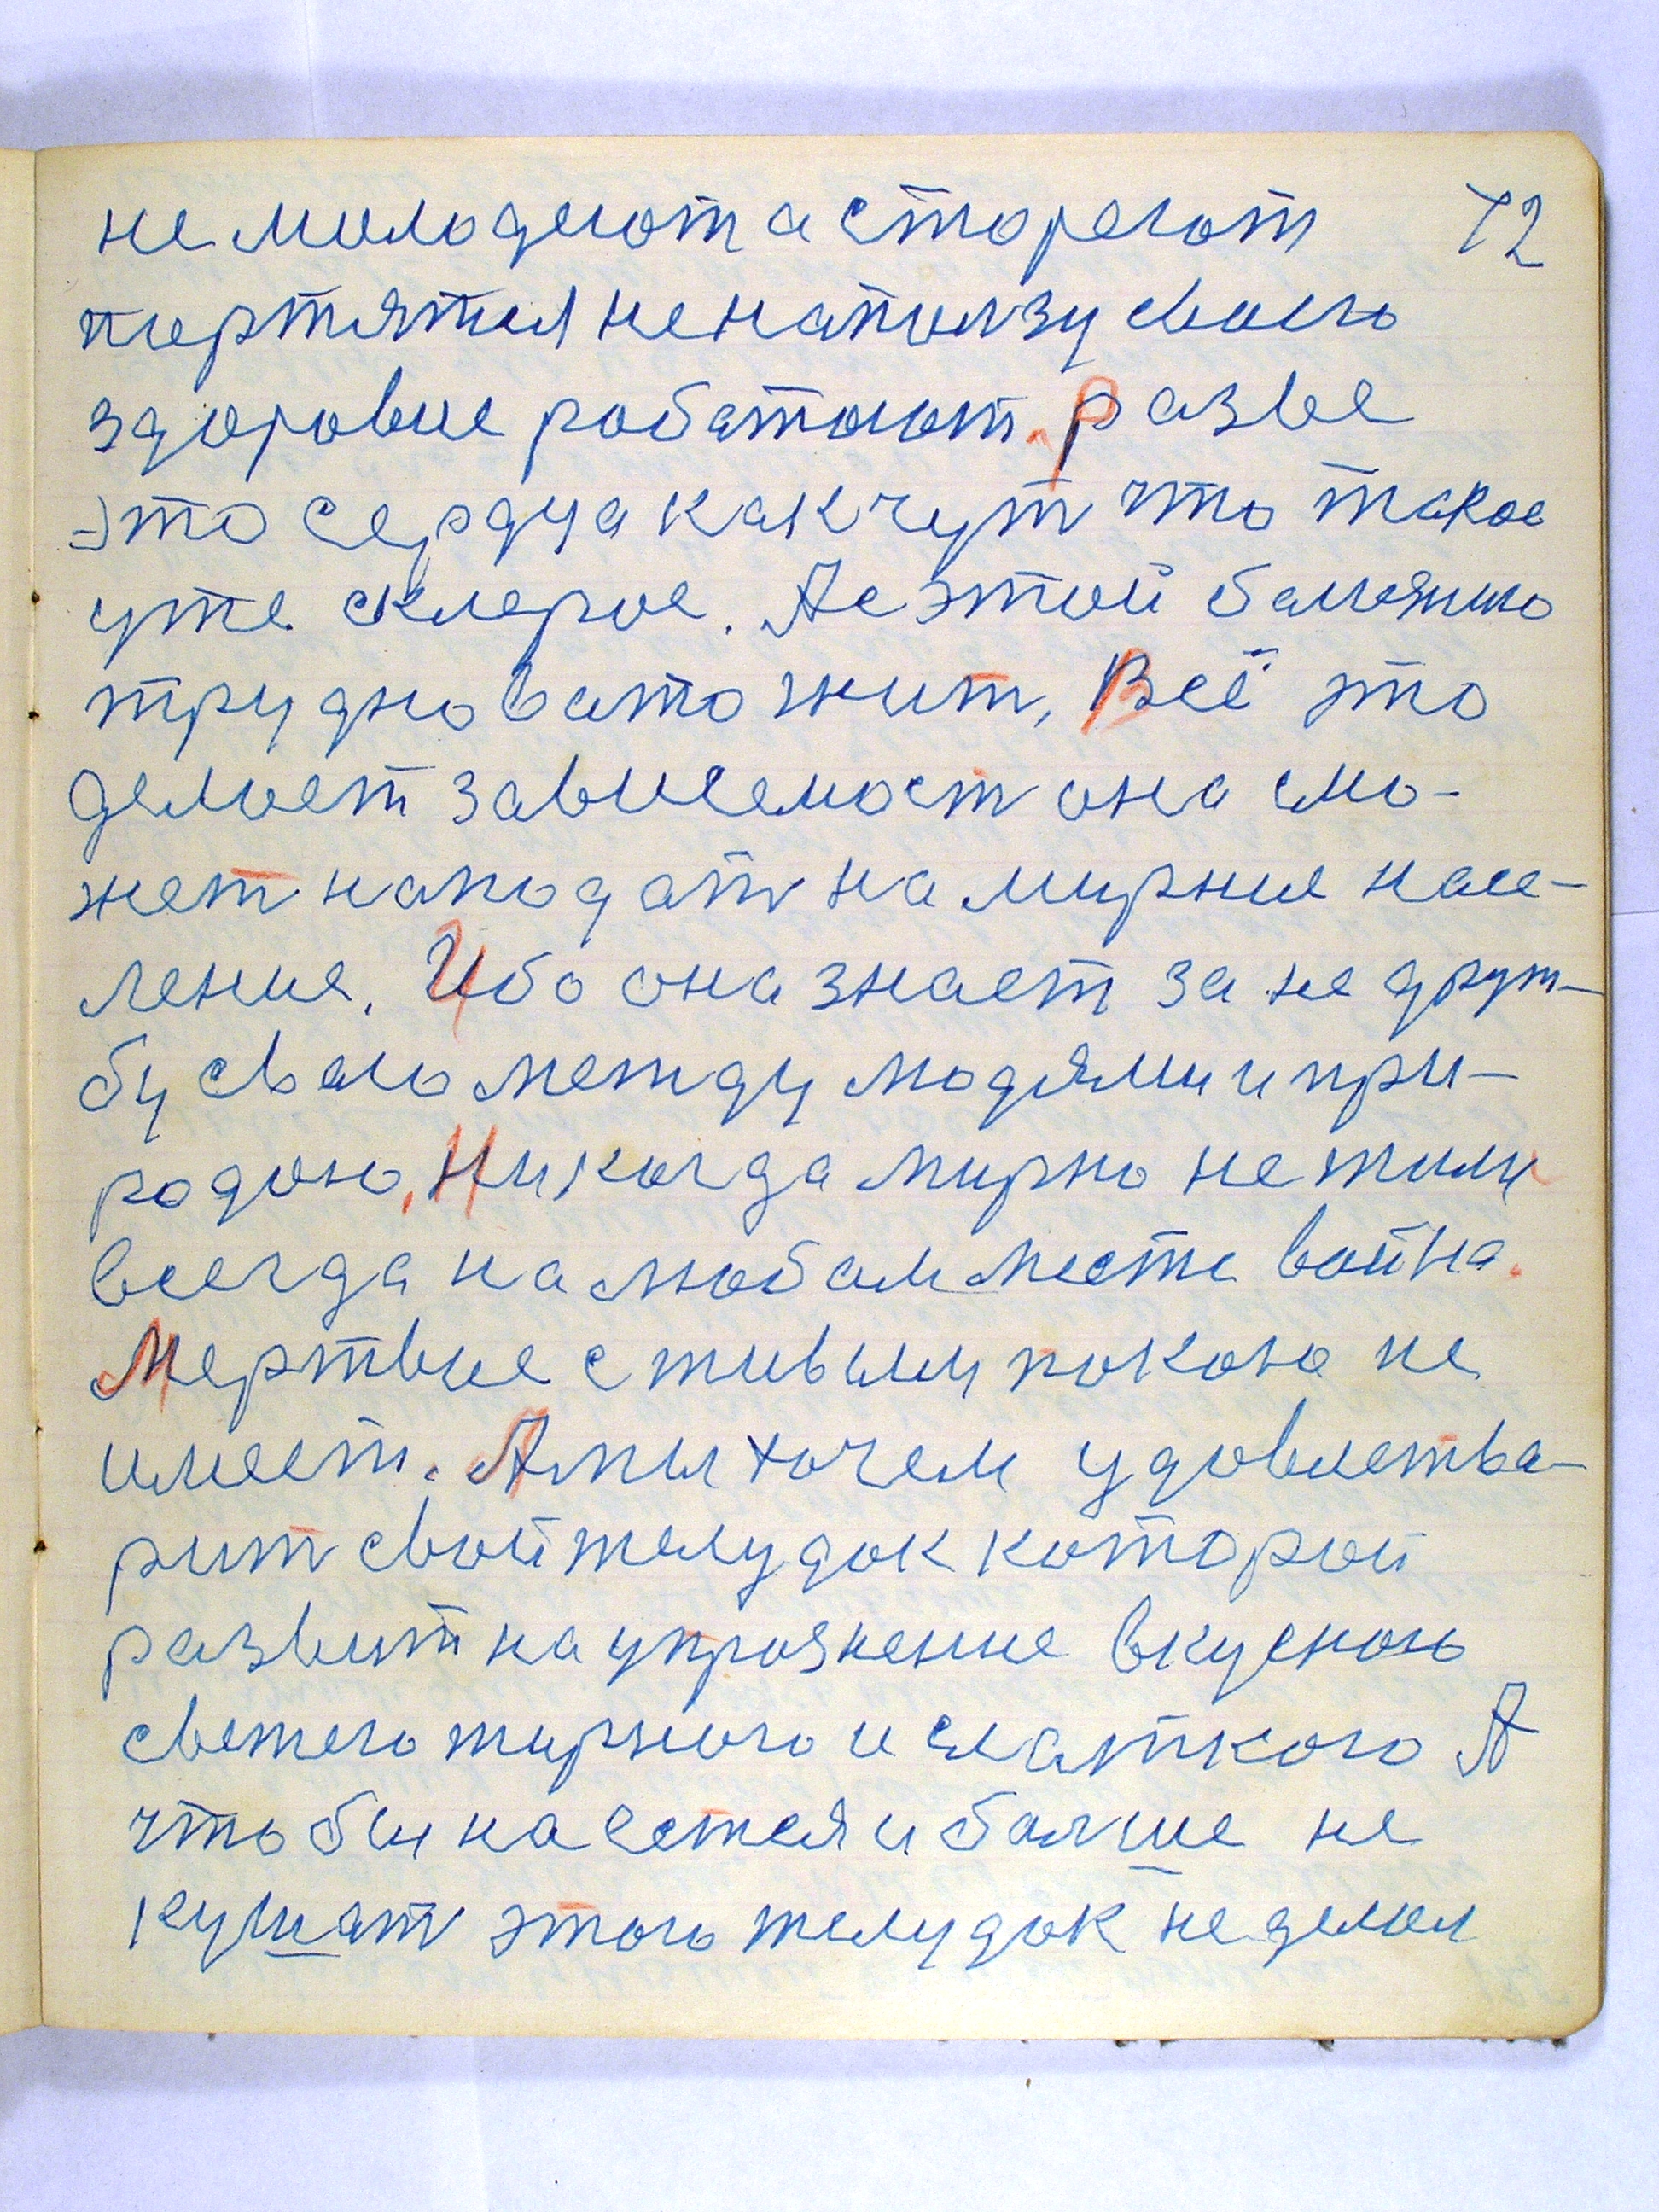 не молодеют а стореют 72
портятся не на ползу своего
здоровие работают. Разве
это сердца как чут что такое
уже склерое. А с этой балезню
трудновато жит, Всё это
делает зависемост она смо-
жет наподат на мирние насе-
ление. Ибо она знает за не друж-
бу сваю между людями и при-
родою. Никогда мирно не жили
всегда на любом месте война.
Мертвие с живыми покою не
имеет. А мы хочем удовлетва-
рит свой желудок которой
развит на упрознение вкусного
свежего жирного и слаткого А
чтобы наестся и болше не
кушат этого желудок не делал